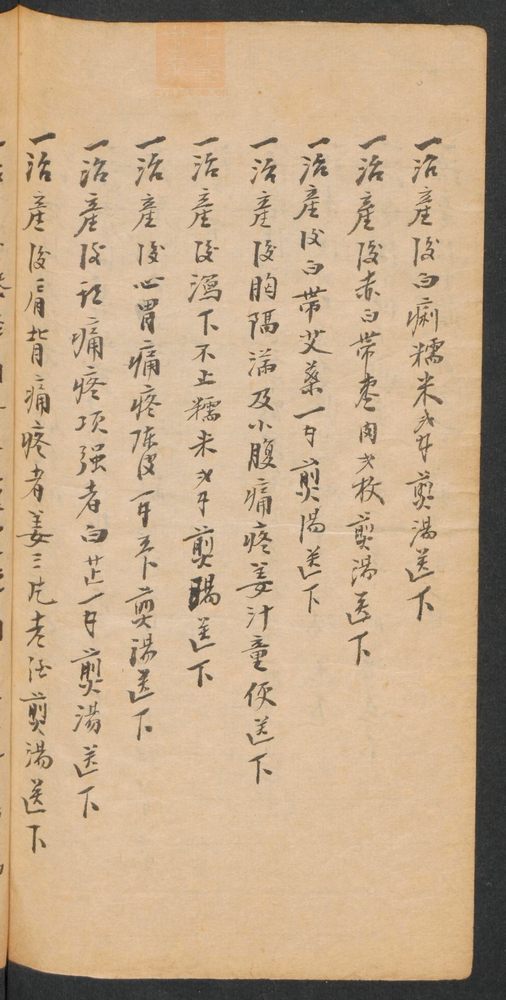 一治產後白痢糯米弍錢煎湯送下
一治產後赤白帶枣肉弍枚煎湯送下
一治產後白帶艾葉一錢煎湯送下
一治產後胸隔满及小腹痛疼姜汁童便送下
一治產後瀉下不止糯米弍錢煎湯送下
一治產後心胃痛疼陈皮一錢五卜煎湯送下
一治產後頭痛疼项强者白芷一錢煎湯送下
一治產後肩背痛疼者姜三片煎湯送下